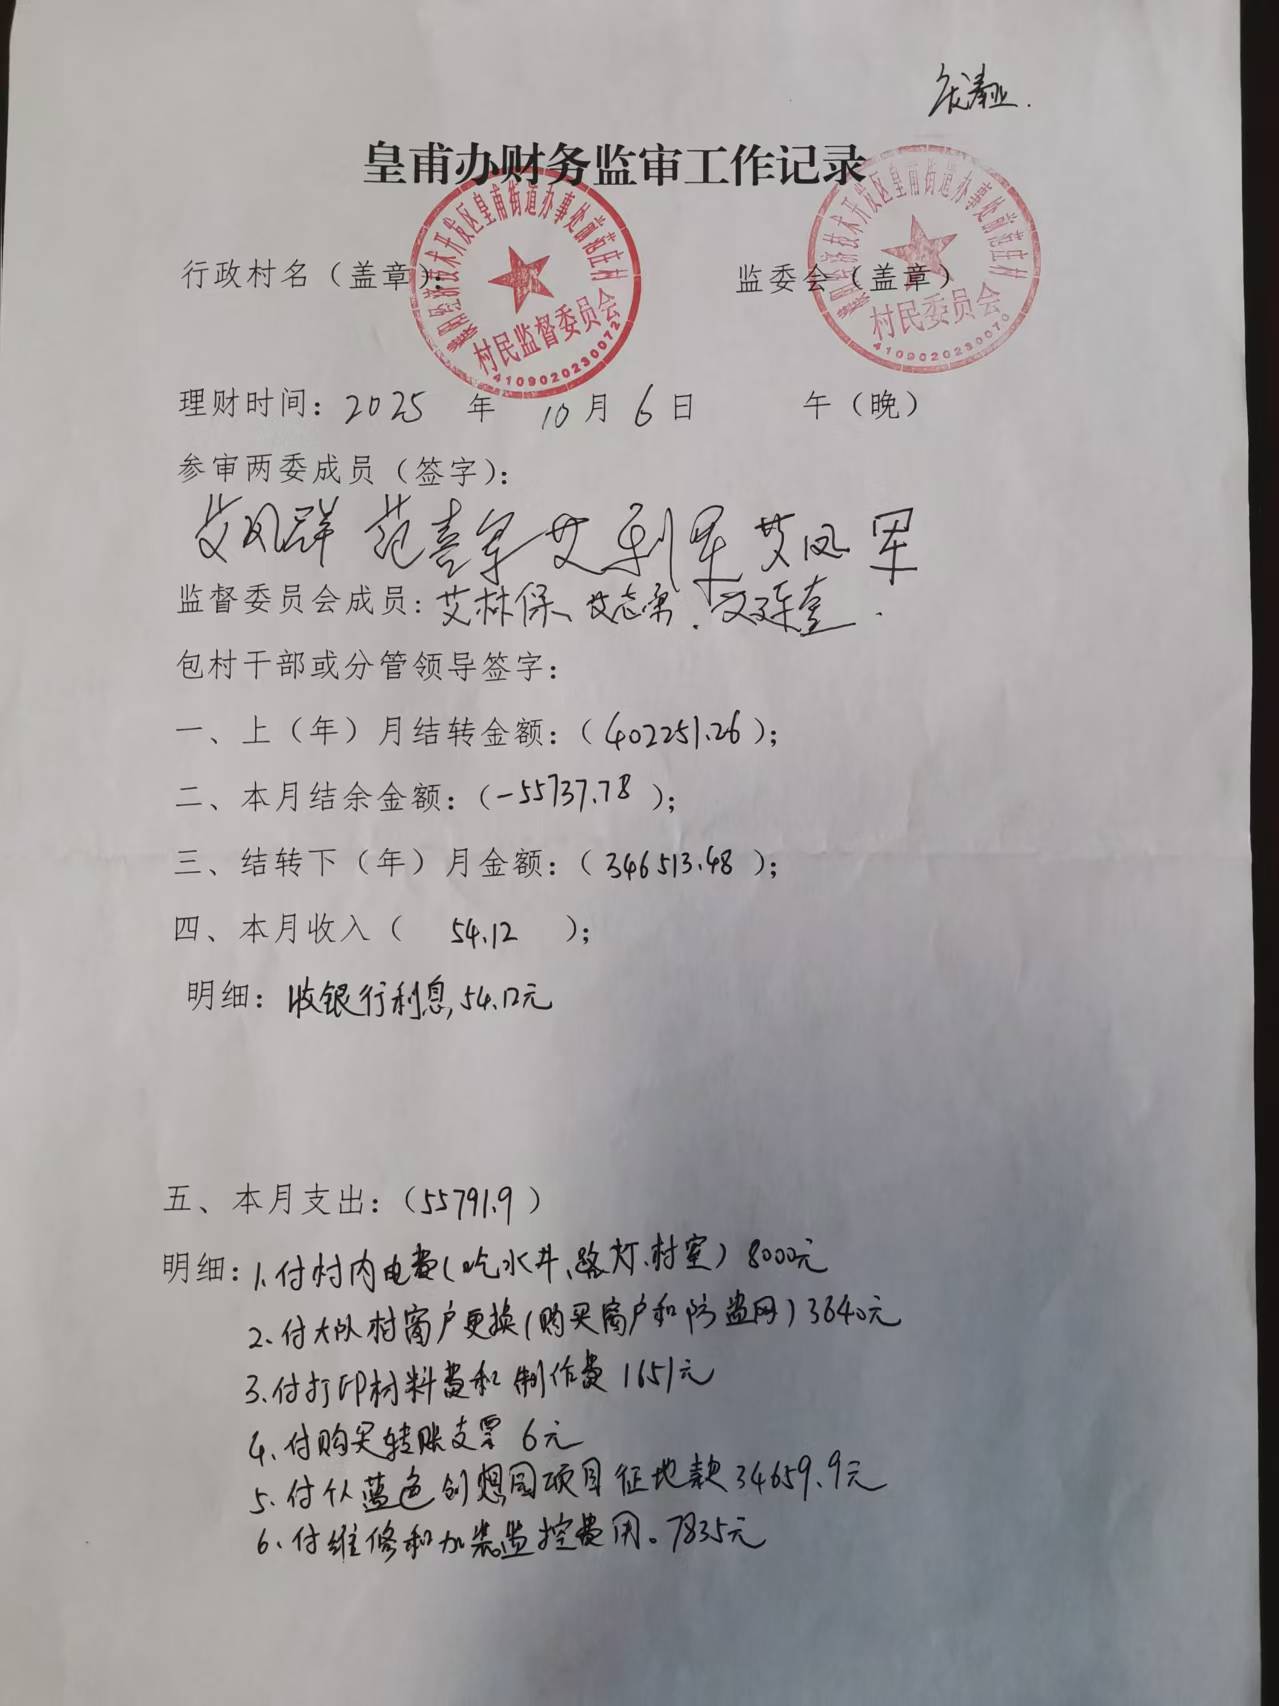 皇甫办财务监审工作记录
行政村名（盖章）：
濮阳经济技术开发区皇甫街道办事处前范庄村
村民监督委员会
4109020230072
监委会（盖章）
濮阳经济技术开发区皇甫街道办事处前范庄村
村民委员会
4109020230070
理财时间：2025 年 10月 6日 午（晚）
参审两委成员（签字）：
艾凤群 范喜军 艾利军 艾凤军
监督委员会成员：艾林保、艾志勇. 艾连奎.
包村干部或分管领导签字：
一、上（年）月结转金额：（402251.26）；
二、本月结余金额：（-55737.78）；
三、结转下（年）月金额：（346513.48）；
四、本月收入（ 54.12 ）；
明细：收银行利息，54.12元
五、本月支出：（55791.9）
明细：1、付村内电费（吃水井、路灯、村室）8000元
2、付大队村窗户更换（购买窗户和防盗网）3640元
3、付打印材料费和制作费1651元
4、付购买转账支票6元
5、付从蓝色创想园项目征地款34659.9元
6、付维修和加装监控费用。7835元